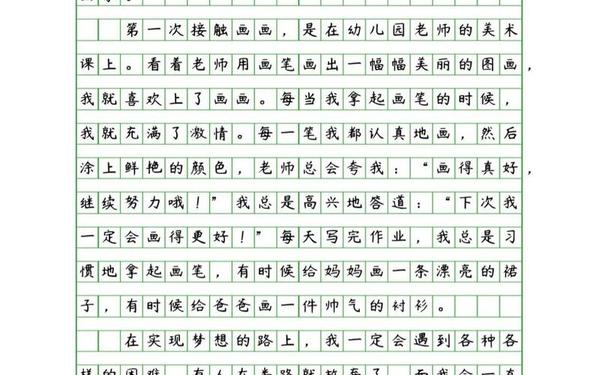 第一次接触画画，是在幼儿园老师的美术
课上。看着老师用画笔画出一幅幅美丽的图画，
我就喜欢上了画画。每当我拿起画笔的时候，
我就充满了激情。每一笔我都认真地画，然后
涂上鲜艳的颜色，老师总会夸我：“画得真好，
继续努力哦！”我总是高兴地答道：“下次我
一定会画得更好！”每天写完作业，我总是习
惯地拿起画笔，有时候给妈妈画一条漂亮的裙
子，有时候给爸爸画一件帅气的衬衫。
在实现梦想的路上，我一定会遇到各种各
样的困难，有人在半路就放弃了，而我会一直